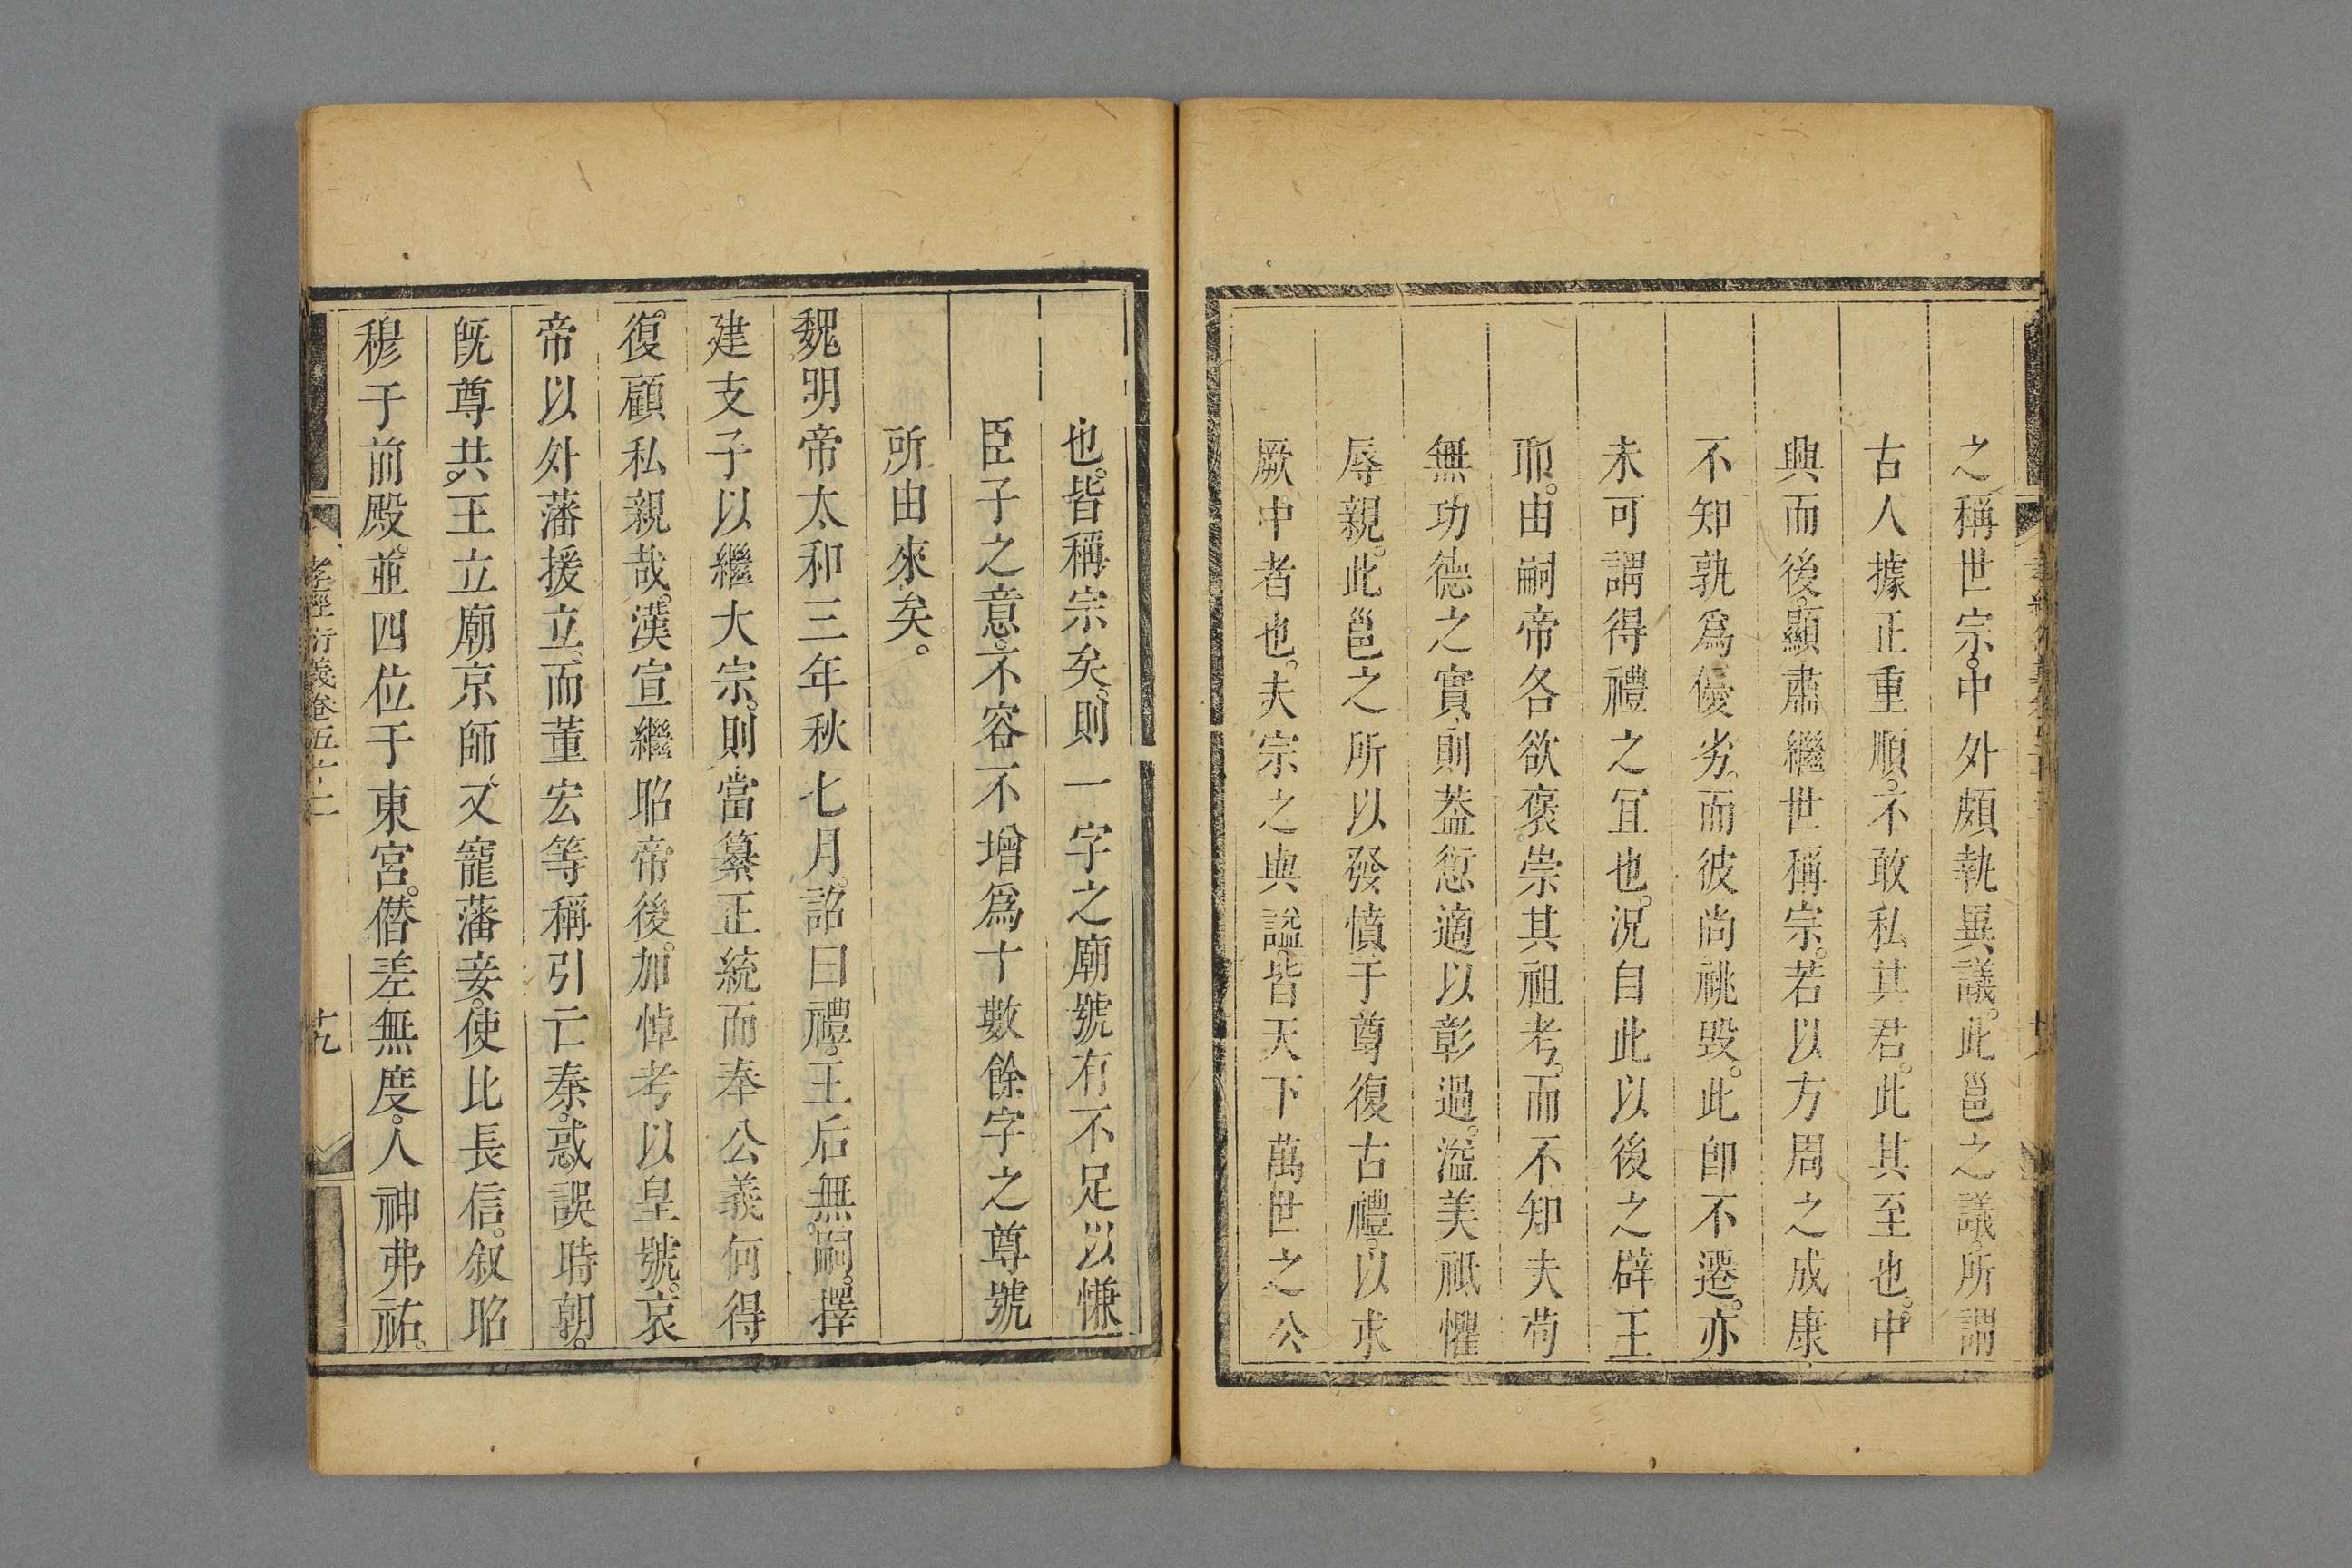 之稱世宗。中外頗執異議。此邕之議。所謂
古人據正重順。不敢私其君。此其至也。中
興而後。顯肅繼世稱宗。若以方周之成康。
不知孰爲優劣。而彼尚祧毀。此卽不遷。亦
未可謂得禮之宜也。況自此以後之辟王
耶。由嗣帝各欲褒。崇其祖考。而不知夫苟
無功德之實。則葢愆適以彰過。溢美祗懼
辱親。此邕之所以發憤于尊復古禮。以求
厥中者也。夫宗之與謚。皆天下萬世之公
也。皆稱宗矣。則一字之廟號有不足以慊
臣子之意。不容不增爲十數餘字之尊號
所由來矣。
魏明帝太和三年秋七月。詔曰禮。王后無嗣。擇
建支子以繼大宗。則當纂正統而奉公義何得
復顧私親哉。漢宣繼昭帝後。加悼考以皇號。哀
帝以外藩援立。而董宏等稱引亡秦。惑誤時朝。
旣尊共。王立廟京師。又寵藩妾。使比長信。叙昭
穆于前殿。並四位于東宮。僭差無度。人神弗祐。
孝經衍義卷五十二
廿九